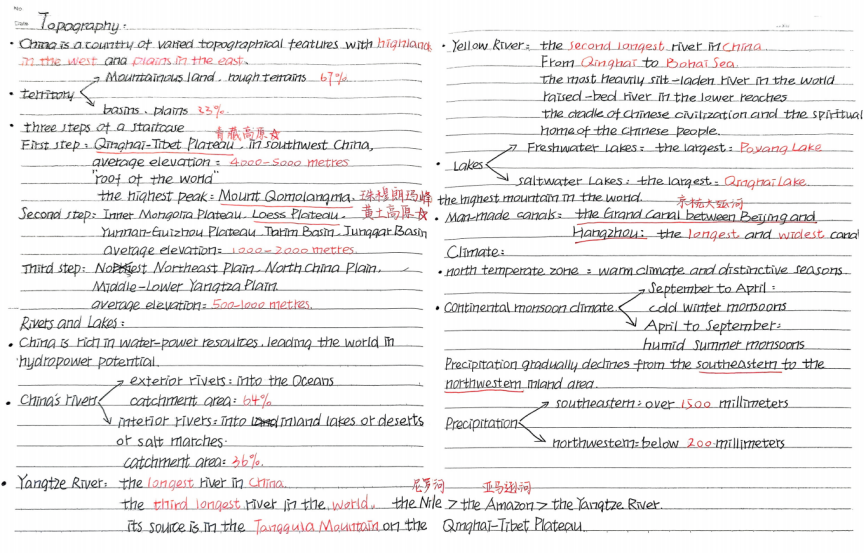 No
Date
Topography:
· China is a country of varied topographical features with highlands
in the west and plains in the east.
Mountainous land, rough terrains 67%.
· territory
basins, plains 33%.
· three steps of a staircase
青藏高原☆
First step: Qinghai-Tibet Plateau, in southwest China,
average elevation: 4000-5000 metres
"roof of the world"
the highest peak: Mount Qomolangma. 珠穆朗玛峰 the highest mountain in the world.
Second step: Inner Mongolia Plateau, Loess Plateau, 黄土高原☆
Yunnan-Guizhou Plateau, Tarim Basin, Junggar Basin
average elevation: 1000-2000 metres.
Third step: Northeast Plain, North China Plain,
Middle-Lower Yangtza Plain
average elevation: 500-1000 metres.
Rivers and Lakes:
· China is rich in water-power resources, leading the world in
hydropower potential.
exterior rivers: into the Oceans
· China's rivers catchment area: 64%
interior rivers: into inland lakes or deserts
or salt marches.
catchment area: 36%.
· Yangtze River: the longest river in China.
尼罗河 亚马逊河
the third longest river in the world. the Nile > the Amazon > the Yangtze River.
its source is in the Tanggula Mountain on the Qinghai-Tibet Plateau.
· Yellow River: the second longest river in China.
From Qinghai to Bohai Sea.
The most heavily silt-laden river in the world
raised-bed river in the lower reaches
the cradle of Chinese civilization and the spiritual
home of the Chinese people.
Freshwater Lakes: the largest: Poyang Lake
· Lakes
saltwater Lakes: the largest: Qinghai Lake.
京杭大运河
· Man-made canals: the Grand Canal between Beijing and
Hangzhou: the longest and widest canal
Climate:
· north temperate zone = warm climate and distinctive seasons
September to April:
· Continental monsoon climate cold winter monsoons
April to September:
humid summer monsoons
Precipitation gradually declines from the southeastern to the
northwestern inland area.
southeastern: over 1500 millimeters
Precipitation
northwestern: below 200 millimeters